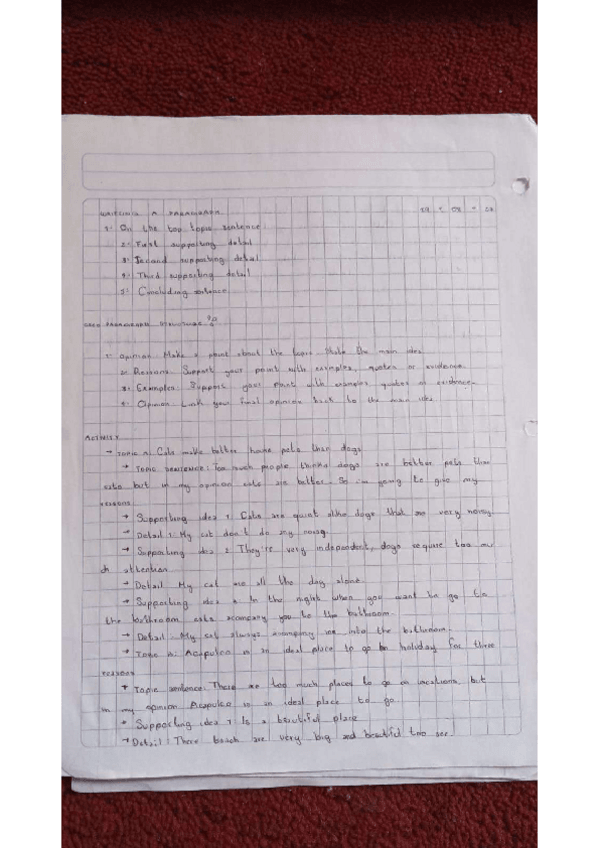 WRITING A PARAGRAPH
1.- On the top topic sentence:
2.- First supporting detail
3.- Second supporting detail
4.- Third supporting detail
5.- Concluding sentence
PARAGRAPH STRUCTURE
1.- Opinion Make a point about the topic. State the main idea
2.- Reasons. Support your point with examples, quotes or evidence.
3.- Examples. Support your point with examples quotes or evidence.
4.- Opinion Link your final opinion back to the main idea
ACTIVITY
→ TOPIC A: Cats make better house pets than dogs
→ TOPIC SENTENCE: Too much people thinks dogs are better pets than
cats but in my opinion cats are better. So i'm going to give my
reasons
→ Supporting idea 1 Cats are quiet dogs that are very noisy
→ Detail 1: My cat don't do any noisy.
→ Supporting idea 2 They're very independent, dogs require too mu
ch attention
→ Detail My cat are all the day alone.
→ Supporting idea In the nights when you want to go to
the bathroom cats acompany you to the bathroom.
→ Detail My cat always acompany me into the bathroom.
→ Topic B: Acapulco is an ideal place to go on holiday for three
reasons
→ Topic sentence: There are too much places to go on vacations, but
in my opinion Acapulco is an ideal place to go
→ Supporting idea 1 Is a beautiful place
→ Detail: There beach are very big and